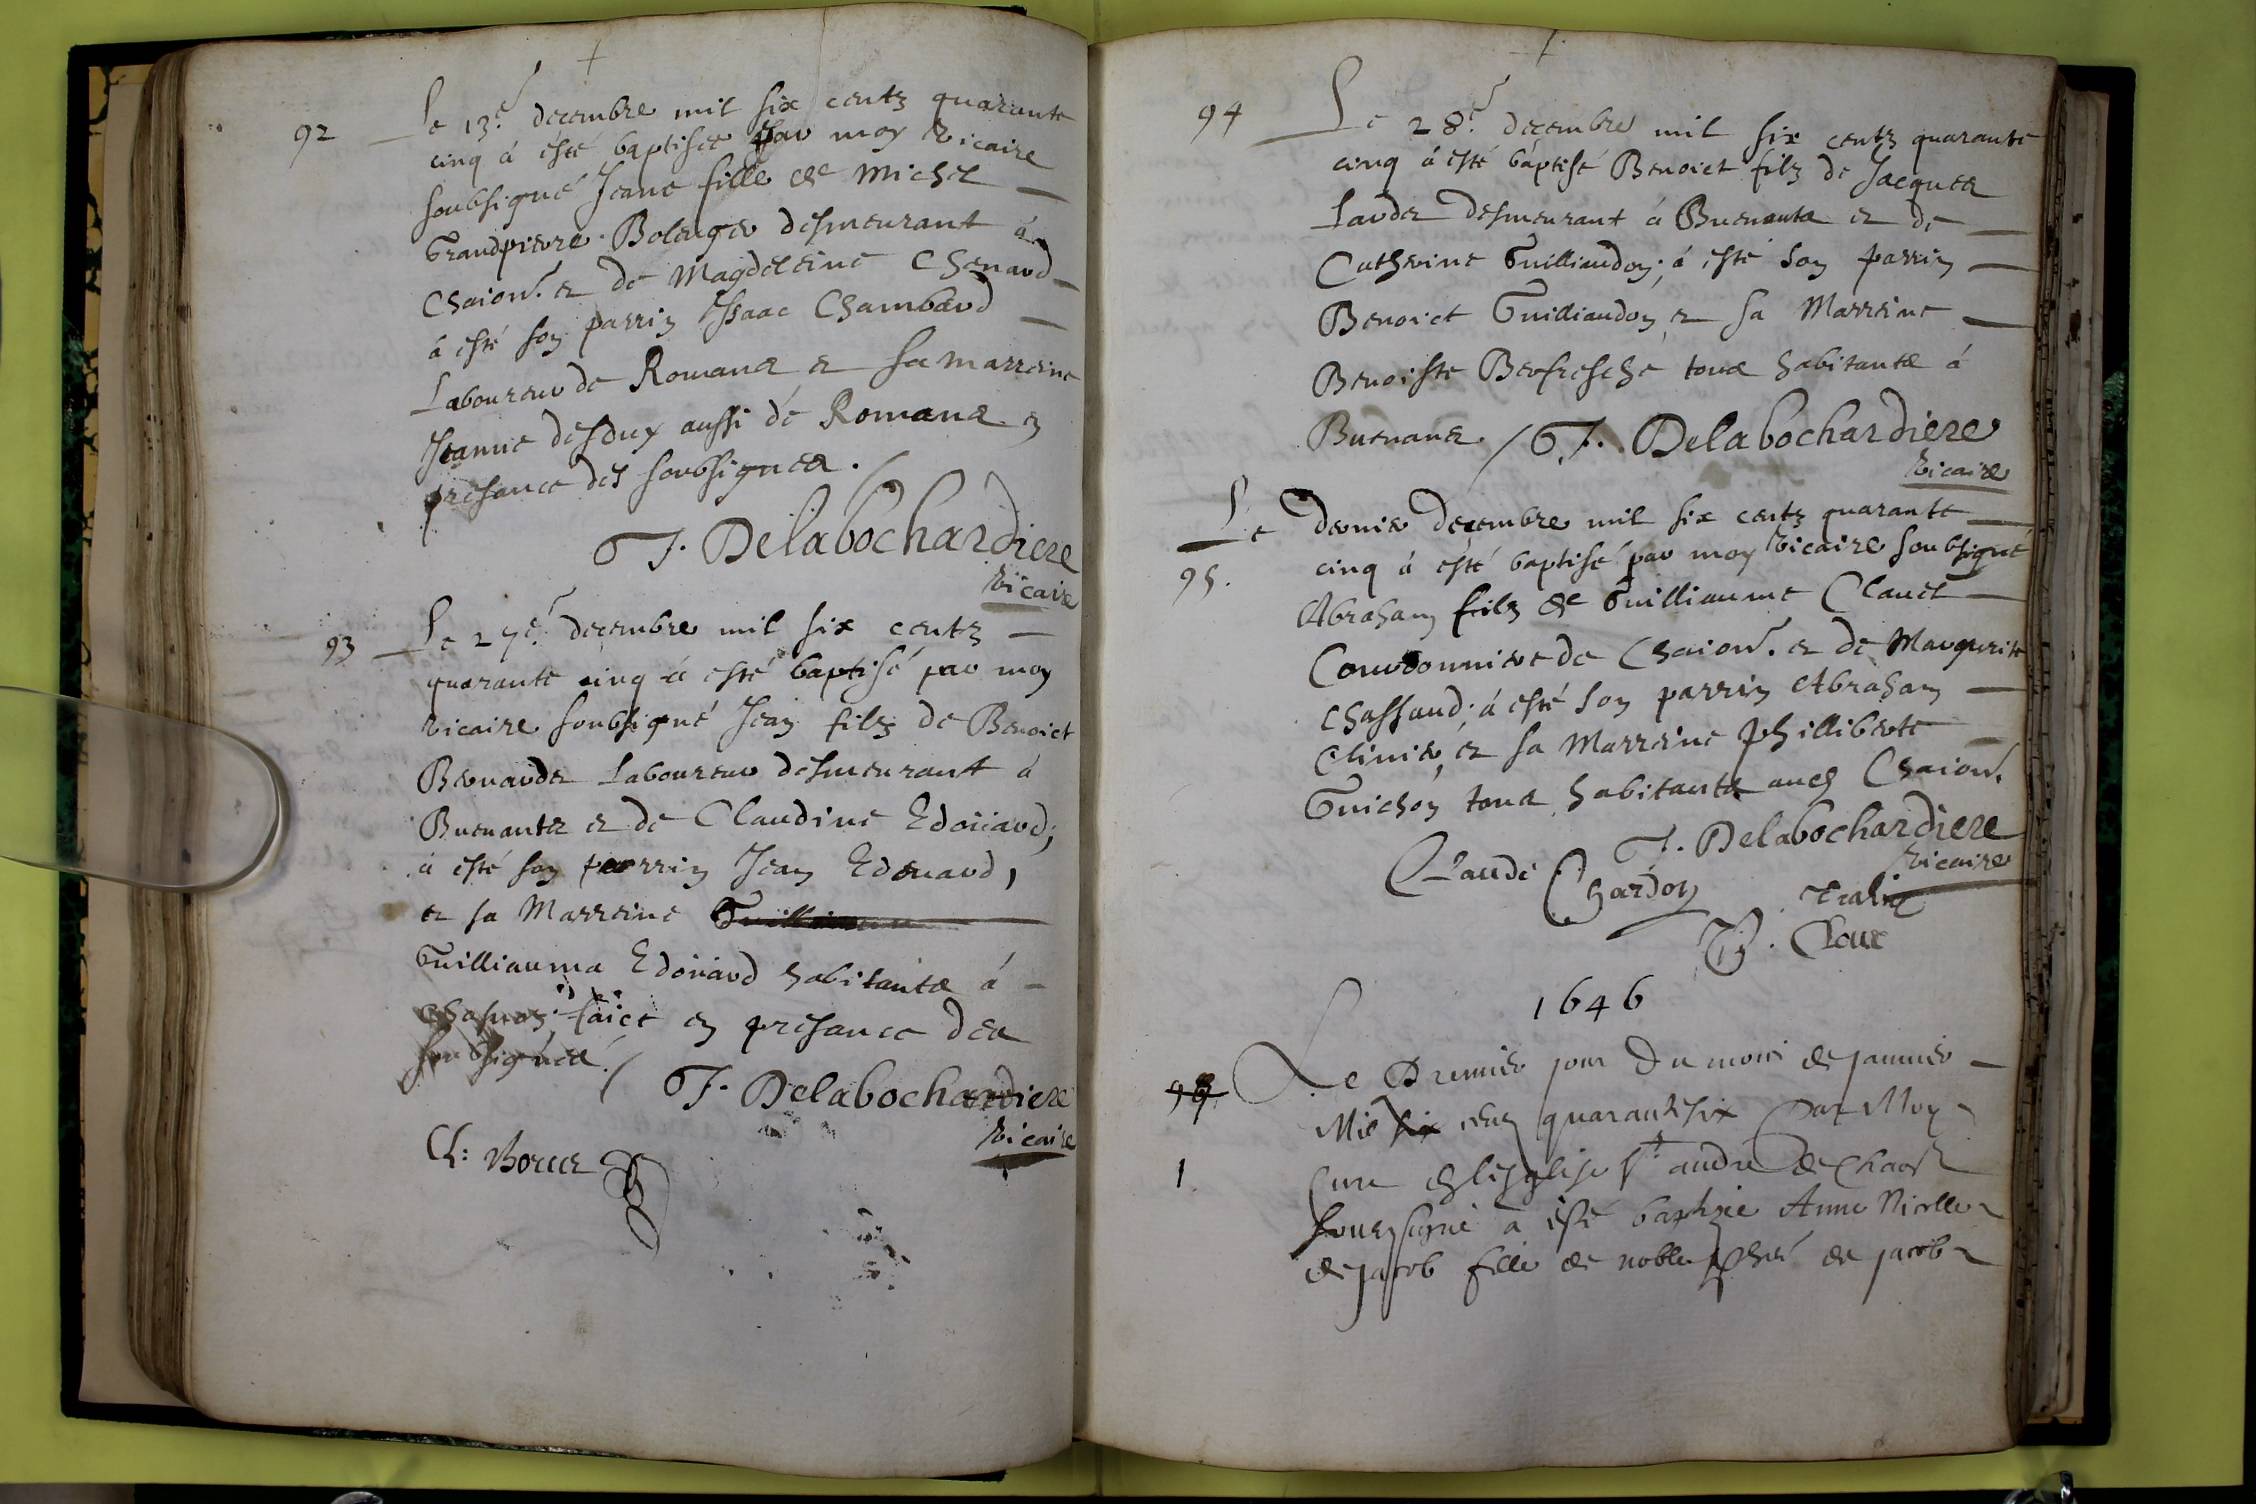 92
Le 13e decembre mil six centz quarante
cinq á ésté baptisée par moy Vicaire
soubsigné Jeane fille de Michel
Grandpierre Bolenger desmeurant á
Chaion. et de Magdeleine Chenard
á esté son parrin Isaac Chambard
Laboureur de Romans et sa marreine
Jeanne desduy aussi dé Romans en
presance des soubsignes.
F. Delabochardiere
Vicaire
93
Le 27e decembre mil six centz
quarante cinq á esté baptisé par moy
vicaire soubsigné Jean filz de Benoict
Bernardet Laboureur desmeurant á
Buenantz et de Claudine Edoüard;
á esté son parrin Jean Edouard,
et sa Marreine
Guilliauma Edoüard habitants á
faict en presance des
soubsignés.
F. Delabochardiere
Vicaire
94
Le 28e decembre mil six centz quarante
cinq á esté baptisé Benoict filz de Jacques
desmeurant á Buenants et de
Catherine Guilliaudon; á esté son parrin
Benoict Guilliaudon, et sa Marreine
Benoiste tous habitants á
Buenans. F. Delabochardiere
Vicaire
Le dernier decembre mil six centz quarante
95.
cinq á esté baptisé par moy Vicaire soubsigné
Abraham filz de Guilliaume Clauel
Courdonnier de Chaion. et de Margurite
Chassaud; á esté son parrin Abraham
Clinier, et sa Marreine Philliberte
Guichon tous habitants aud Chaion.
F. Delabochardiere
Vicaire
Claude Chardon
1646
Le Premier jour du mois de januier
Mil six cens quarante six Par Moy
1
Cure en lesglise st andre de
soubsigné a esté baptizee Anne Nicolle
de jacob fille de noble de jacob